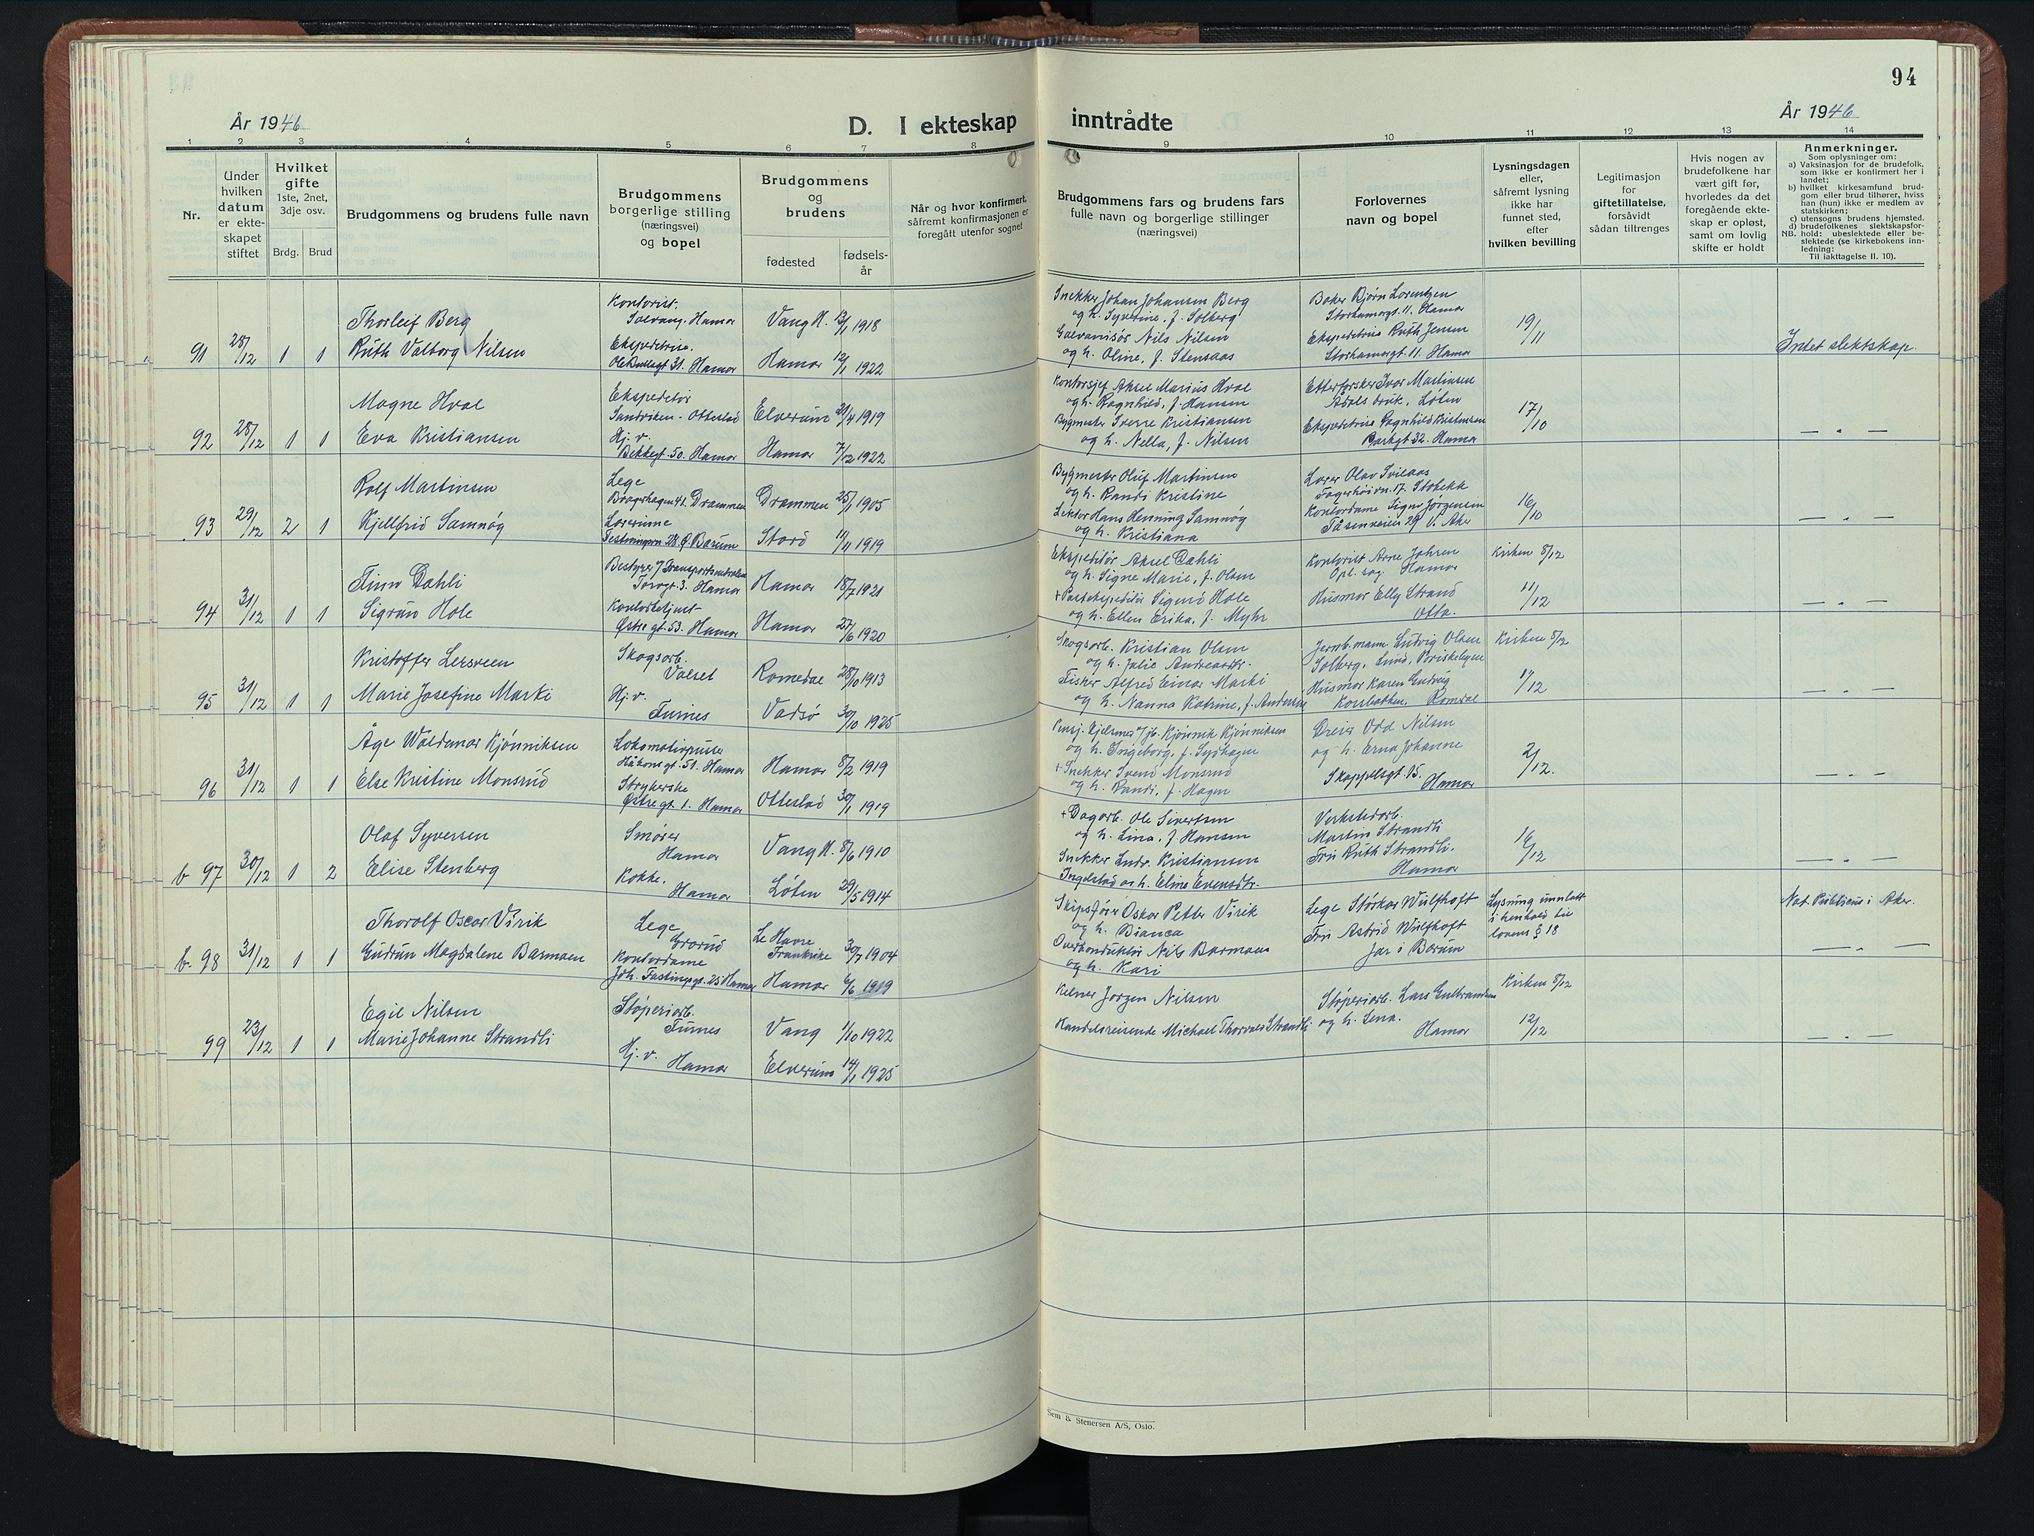 94
År 1946
D. I ekteskap inntrådte
År 1946
1 2 3 4 5 6 7 8 9 10 11 12 13 14
Nr.
Under
hvilken
datum
er ekte-
skapet
stiftet
Hvilket
gifte
1ste, 2net,
3dje osv.
Brdg. Brud
Brudgommens og brudens fulle navn
Brudgommens
borgerlige stilling
(næringsvei)
og bopel
Brudgommens
og
brudens
fødested
fødsels-
år
Når og hvor konfirmert,
såfremt konfirmasjonen er
foregått utenfor sognet
Brudgommens fars og brudens fars
fulle navn og borgerlige stillinger
(næringsvei)
Forlovernes
navn og bopel
Lysningsdagen
eller,
såfremt lysning
ikke har
funnet sted,
efter
hvilken bevilling
Legitimasjon
for
giftetillatelse,
forsåvidt
sådan tiltrenges
Hvis nogen av
brudefolkene har
vært gift før,
hvorledes da det
foregående ekte-
skap er opløst,
samt om lovlig
skifte er holdt
Anmerkninger.
Som oplysninger om:
a) Vaksinasjon for de brudefolk,
som ikke er konfirmert her i
landet;
b) hvilket kirkesamfund brud-
gom eller brud tilhører, hvis
han (hun) ikke er medlem av
statskirken;
c) utensogns brudens hjemsted.
d) brudefolkenes slektskapsfor-
NB. hold: ubeslektede eller be-
slektede (se kirkebokens inn-
ledning:
Til iakttagelse II. 10).
91 28/12 1 1
Thorleif Berg
Ruth Valborg Nilsen
Kontorist.
Solvang. Hamar
Ekspeditrise.
Ole Bullsgt 31. Hamar
Vang H. 13/1 1918
Hamar 12/1 1922
Snekker Johan Johansen Berg
og h. Syverine, f. Solberg
Galvanisør Nils Nilsen
og h. Oline, f. Stensaas
Baker Bjørn Lorentzen
Storhamargt. 11. Hamar
Ekspeditrise Ruth Jensen
Storhamargt. 11. Hamar
19/11
Intet slektskap.
92 28/12 1 1
Magne Hval
Eva Kristiansen
Ekspeditør
Sandviken - Ottestad
Hj. v.
Bekkegt. 50. Hamar
Elverum 21/4 1919
Hamar 7/12 1922
Kontorsjef Aksel Marius Hval
og h. Ragnhild, f. Hansen
Bygmester Sverre Kristiansen
og h. Nella, f. Nilsen
Etterforsker Ivar Martinsen
Ådals bruk, Løten
Ekspeditrise Ragnhild Kristiansen
Parkgt 32. Hamar
17/10
— „ —
93 29/12 2 1
Rolf Martinsen
Kjellfrid Samnøy
Lege
Bragerhagen 41. Drammen
Lærerinne
28 Ø. Bærum
Drammen 25/1 1905
Stord 12/11 1919
Bygmester Oluf Martinsen
og h. Randi Kristine
Lektor Hans Henning Samnøy
og h. Kristiana
Lærer Olav Svilaas
Fagerhøivn. 17. Stabekk
Kontordame Signe Jørgensen
Tåsenveien 29 V. Aker
16/10
— „ —
94 31/12 1 1
Finn Dæhli
Sigrun Hole
Bestyrer 7 Transportsentralen
Torvgt 3. Hamar
Østregt. 53. Hamar
Hamar 18/7 1921
Hamar 27/6 1920
Ekspeditør Aksel Dæhli
og h. Signe Marie, f. Olsen
+ Sigurd Hole
og h. Ellen Erika, f. Myhr
Kontorist Arne Johren
Opl. sog. Hamar
Husmor Elly Strand
Otta.
Kirken 8/12
11/12
— „ —
95 31/12 1 1
Kristoffer Lersveen
Marie Josefine Marki
Skogsarb.
Valset
Hj. v.
Furnes
Romedal 28/10 1913
Vadsø 30/10 1925
Skogsarb. Kristian Olsen
og h. Julie Andreasdtr.
Fisker Alfred Einar Marki
og h. Nanna Katrine, f. Andersen
Jernb.mann Ludvig Olsen
Solberg, Lund, Briskebyen
Husmor Karen Ludvig
Romedal
Kirken 8/12
11/12
— „ —
96 31/12 1 1
Åge Waldemar Kjønniksen
Else Kristine Monsrud
Lokomotivpusser
Håkonsgt. 51. Hamar
Strykerske
Østregt. 1. Hamar
Hamar 8/2 1919
Ottestad 30/1 1919
Pensj. Hjelpmed 7 jb. Kjønnik Kjønniksen
og h. Ingeborg, f. Sydhagen
+ Snekker Svend Monsrud
og h. Randi, f. Hagen
Dreier Odd Nilsen
og h. Erna Johanne
Skappelsgt 15.
Hamar
2/12.
— „ —
b 97 30/12 1 2
Olaf Syversen
Elise Stenberg
Smører
Hamar
Kokke.
Hamar
Vang H. 8/6 1910
Løten 29/5 1914
+ Dagarb. Ole Sivertsen
og h. Lina, f Hansen
Snekker Ludv. Kristiansen
Ingelstad og h. Eline Evensdtr.
Verkstedarb.
Martin Strandli
Fru Ruth Strandli.
Hamar
16/12
— „ —
b. 98 31/12 1 1
Thorolf Oscar Virik
Gudrun Magdalene Barmoen
Lege
Grorud
Kontordame
Joh. Fastingsgt. 25 Hamar
Le Havre
Frankrike 30/7 1904
Hamar 6/6 1919
Skipsfører Oskar Petter Virik
og h. Bianca
Overkonduktør Nils Barmoen
og h. Kari
Lege Størkar Wulfhoft
Fru Astrid Wulfhoft
Jar i Bærum
Lysning unnlatt
i henhold til
lovens § 18
Not. Publicus i Aker.
— „ —
99 23/12 1 1
Egil Nilsen
Marie Johanne Strandli
Støperiarb.
Furnes
Hj. v. Hamar
Vang 1/10 1922
Elverum 14/1 1925
Kelner Jørgen Nilsen
Handelsreisende Michael Thorvald Strandli
Støperiarb. Lars Gulbrandsen
og h. Lena.
Hamar
Kirken 8/12
12/12
— „ —
Sem & Stenersen A/S, Oslo.